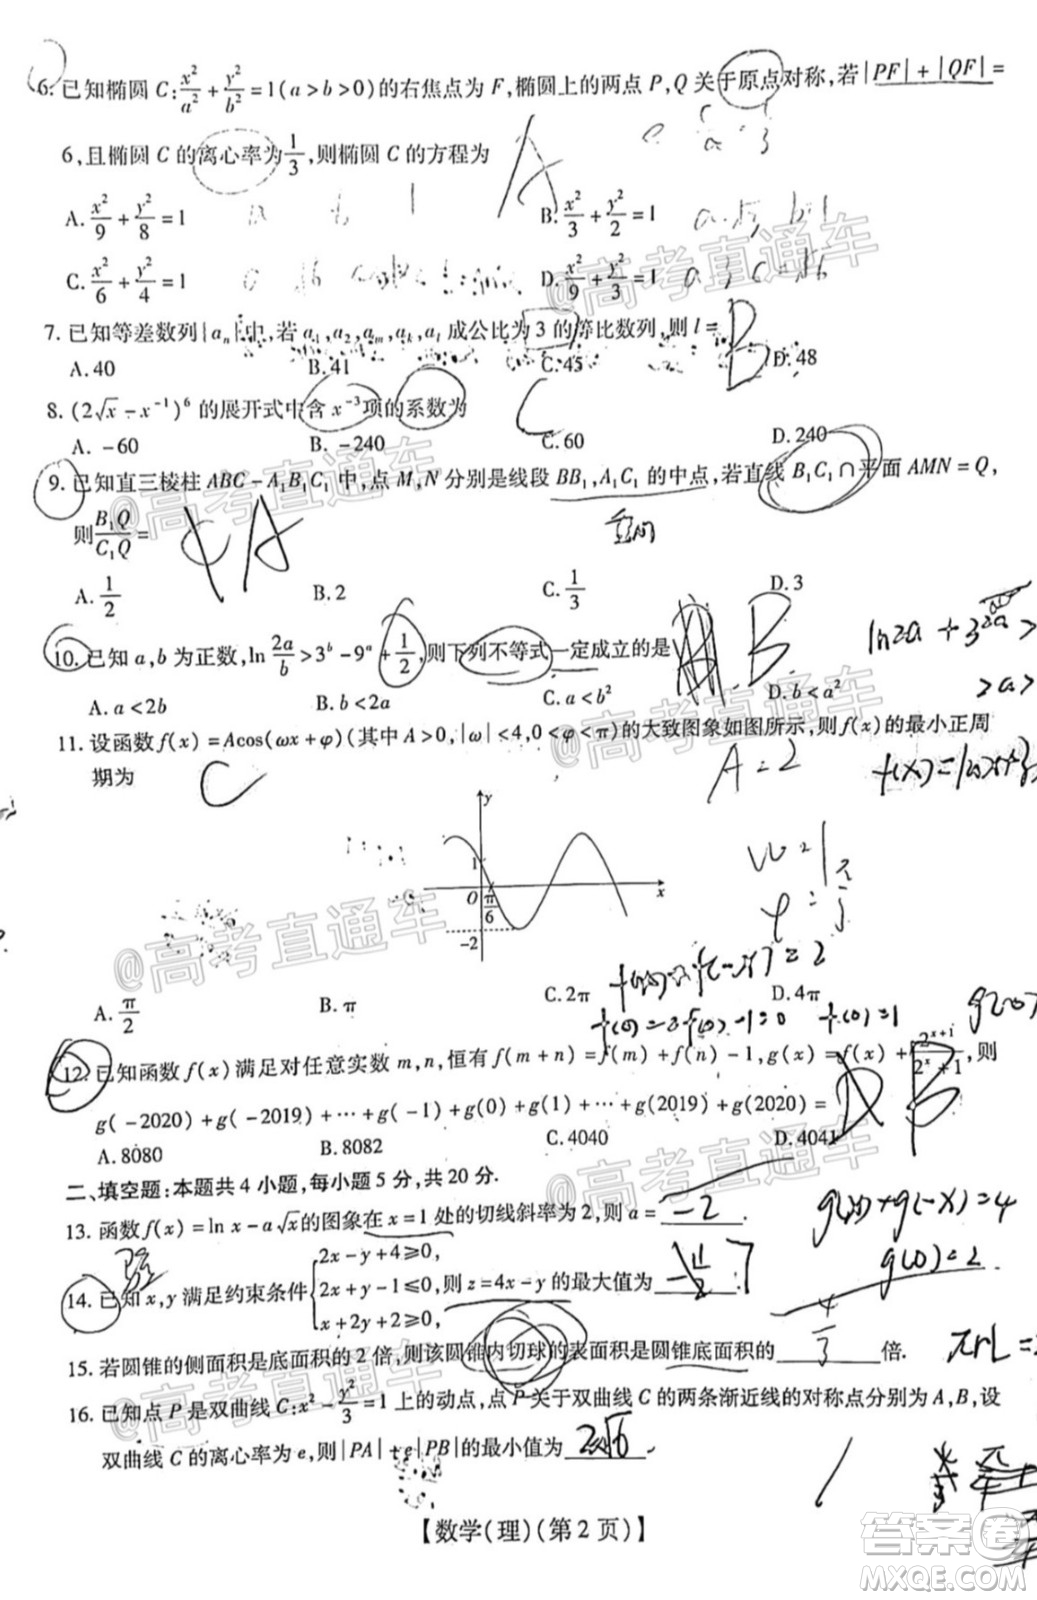 6. 已知椭圆 C: x²/a² + y²/b² = 1(a>b>0)的右焦点为 F,椭圆上的两点 P,Q 关于原点对称,若|PF|+|QF|=
6,且椭圆 C 的离心率为 1/3,则椭圆 C 的方程为
A
A. x²/9 + y²/8 = 1
B. x²/3 + y²/2 = 1
C. x²/6 + y²/4 = 1
D. x²/9 + y²/3 = 1
7. 已知等差数列{aₙ}中,若 a₁,a₂,aₘ,aₖ,aₗ 成公比为 3 的等比数列,则 l =
B
A. 40
B. 41
C. 45
D. 48
8. (2√x - x⁻¹)⁶ 的展开式中含 x⁻³项的系数为
C
A. -60
B. -240
C. 60
D. 240
9. 已知直三棱柱 ABC-A₁B₁C₁ 中,点 M,N 分别是线段 BB₁,A₁C₁ 的中点,若直线 B₁C₁∩平面 AMN=Q,
则 B₁Q/C₁Q =
A
A. 1/2
B. 2
C. 1/3
D. 3
10. 已知 a,b 为正数, ln 2a/b > 3ᵇ - 9ᵃ + 1/2,则下列不等式一定成立的是
B
A. a<2b
B. b<2a
C. a<b²
D. b<a²
11. 设函数 f(x)=Acos(ωx+φ)(其中 A>0,|ω|<4,0<φ<π)的大致图象如图所示,则 f(x)的最小正周
期为
C
A=2
y
1
O
π/6
x
-2
A. π/2
B. π
C. 2π
D. 4π
12. 已知函数 f(x)满足对任意实数 m,n,恒有 f(m+n)=f(m)+f(n)-1,g(x)=f(x)+2ˣ⁺¹/(2ˣ+1),则
g(-2020)+g(-2019)+…+g(-1)+g(0)+g(1)+…+g(2019)+g(2020)=
B
A. 8080
B. 8082
C. 4040
D. 4041
二、填空题:本题共 4 小题,每小题 5 分,共 20 分.
13. 函数 f(x)=ln x-a√x的图象在 x=1 处的切线斜率为 2,则 a= -2 .
g(x)+g(-x)=4
g(0)=2
14. 已知 x,y 满足约束条件{2x-y+4≥0, 2x+y-1≤0, x+2y+2≥0, 则 z=4x-y 的最大值为
15. 若圆锥的侧面积是底面积的 2 倍,则该圆锥内切球的表面积是圆锥底面积的 4/3 倍.
16. 已知点 P 是双曲线 C: x² - y²/3 = 1 上的动点,点 P 关于双曲线 C 的两条渐近线的对称点分别为 A,B,设
双曲线 C 的离心率为 e,则|PA|+e|PB|的最小值为 2√6 .
【数学(理)(第 2 页)】
@高考直通车
@高考直通车
@高考直通车
@高考直通车
@高考直通车
@高考直通车
答案圈
MXQE.COM